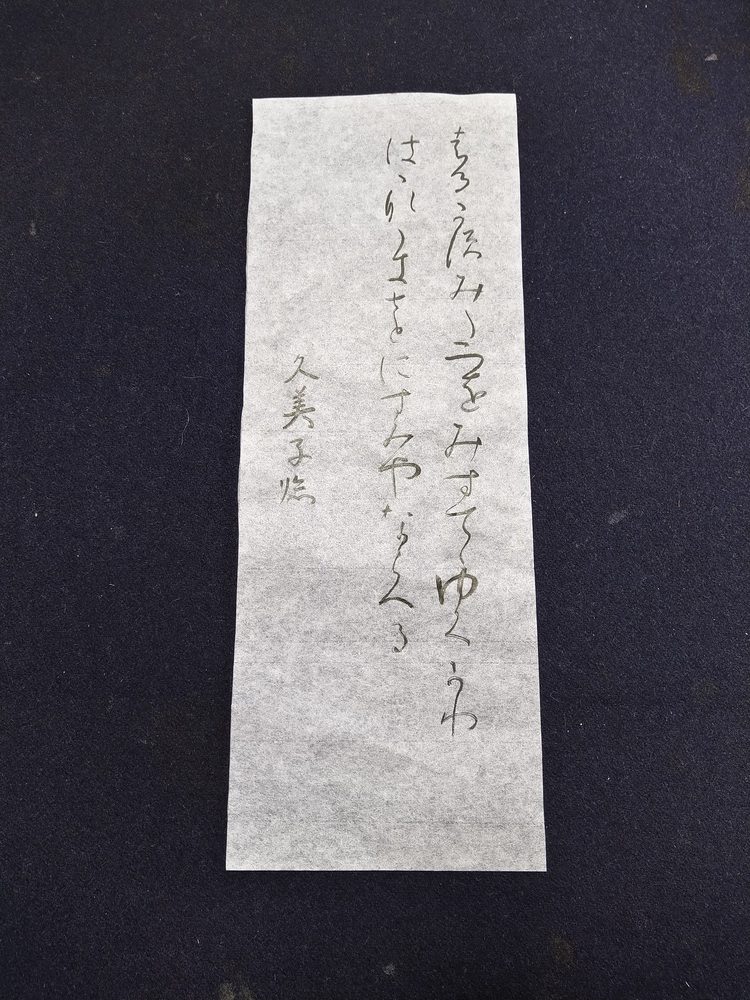 はるかすみたつをみすてゝゆくかり
は、なゝきさとにすみやならへる
久美子臨